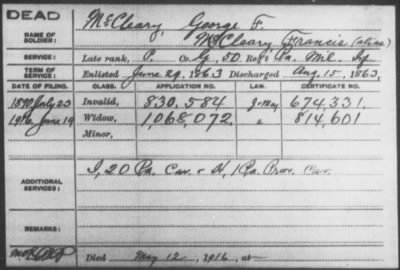 DEAD
McCleary, George F.
NAME OF SOLDIER:
McCleary, Francis (alias)
SERVICE: Late rank, P. Co. G, 50 Reg't Pa. Mil. Inf
TERM OF SERVICE: Enlisted June 29, 1863 Discharged Aug. 15, 1863,
DATE OF FILING. CLASS. APPLICATION NO. LAW. CERTIFICATE NO.
1890 July 23 Invalid, 830,584 674,331
1916 June 19 Widow, 1,068,072 " 814,601
Minor,
ADDITIONAL SERVICES: I, 20 Pa. Cav. & H, 1 Pa. Prov. Cav.
REMARKS:
Died May 12, 1916, at